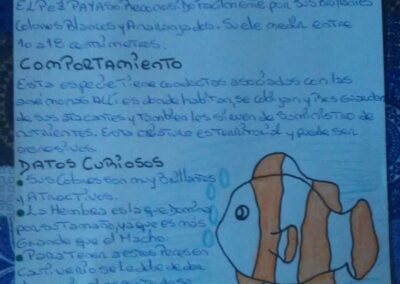 EL PEZ PAYASO Reconocido Facilmente por sus Brillantes
Colores Blancos y Anaranjados. Suele medir entre
10 a 18 centimetros.
COMPORTAMIENTO
Esta especie Tiene conductas asociados con las
anemonas Alli es donde habitan, se cobijan y
de sus atacantes y Tambien les sirven de suministro de
nutrientes. Esta criatura es territorial y puede ser
agresivos.
DATOS CURIOSOS
• Sus Colores son muy Brillantes
y Atractivos.
• La Hembra es la que Domina
por su Tamaño, ya que es más
Grande que el Macho.
• Para tener a estos Peces en
Cautiverio se le debe de dar